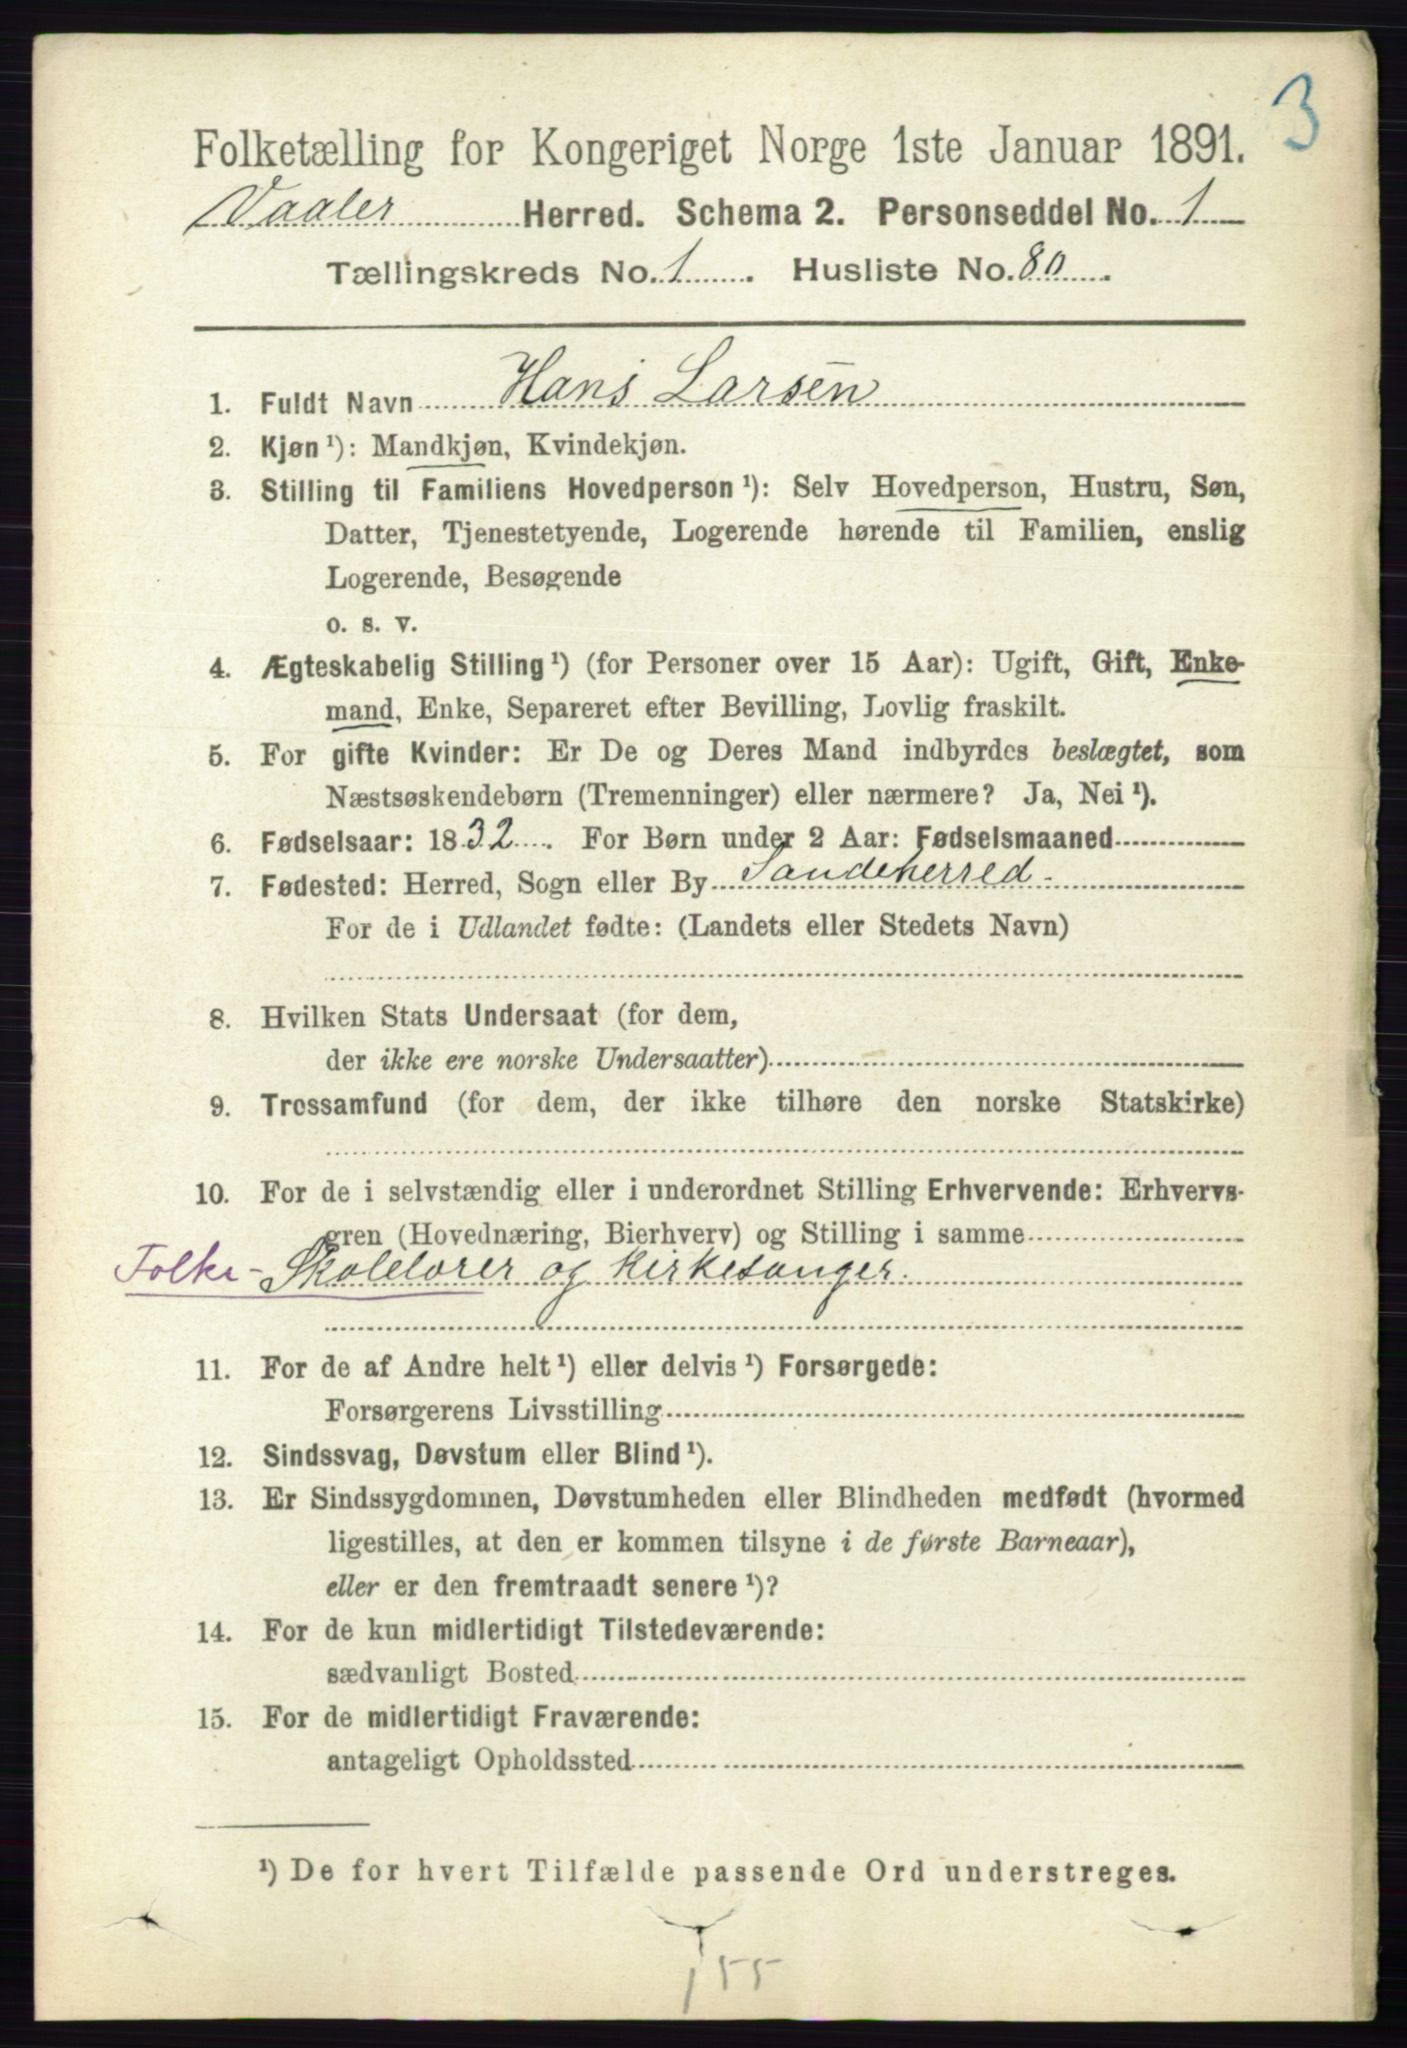 3
Folketælling for Kongeriget Norge 1ste Januar 1891.
Vaaler Herred. Schema 2. Personseddel No. 1
Tællingskreds No. 1. Husliste No. 80.
1. Fuldt Navn Hans Larsen
2. Kjøn ¹): Mandkjøn, Kvindekjøn.
3. Stilling til Familiens Hovedperson ¹): Selv Hovedperson, Hustru, Søn,
Datter, Tjenestetyende, Logerende hørende til Familien, enslig
Logerende, Besøgende
o. s. v.
4. Ægteskabelig Stilling ¹) (for Personer over 15 Aar): Ugift, Gift, Enke-
mand, Enke, Separeret efter Bevilling, Lovlig fraskilt.
5. For gifte Kvinder: Er De og Deres Mand indbyrdes beslægtet, som
Næstsøskendebørn (Tremenninger) eller nærmere? Ja, Nei ¹).
6. Fødselsaar: 1832. For Børn under 2 Aar: Fødselsmaaned
7. Fødested: Herred, Sogn eller By Sandeherred.
For de i Udlandet fødte: (Landets eller Stedets Navn)
8. Hvilken Stats Undersaat (for dem,
der ikke ere norske Undersaatter)
9. Trossamfund (for dem, der ikke tilhøre den norske Statskirke)
10. For de i selvstændig eller i underordnet Stilling Erhvervende: Erhvervs-
gren (Hovednæring, Bierhverv) og Stilling i samme
Folke- Skolelærer og Kirkesanger.
11. For de af Andre helt ¹) eller delvis ¹) Forsørgede:
Forsørgerens Livsstilling
12. Sindssvag, Døvstum eller Blind ¹).
13. Er Sindssygdommen, Døvstumheden eller Blindheden medfødt (hvormed
ligestilles, at den er kommen tilsyne i de første Barneaar),
eller er den fremtraadt senere ¹)?
14. For de kun midlertidigt Tilstedeværende:
sædvanligt Bosted
15. For de midlertidigt Fraværende:
antageligt Opholdssted
¹) De for hvert Tilfælde passende Ord understreges.
155